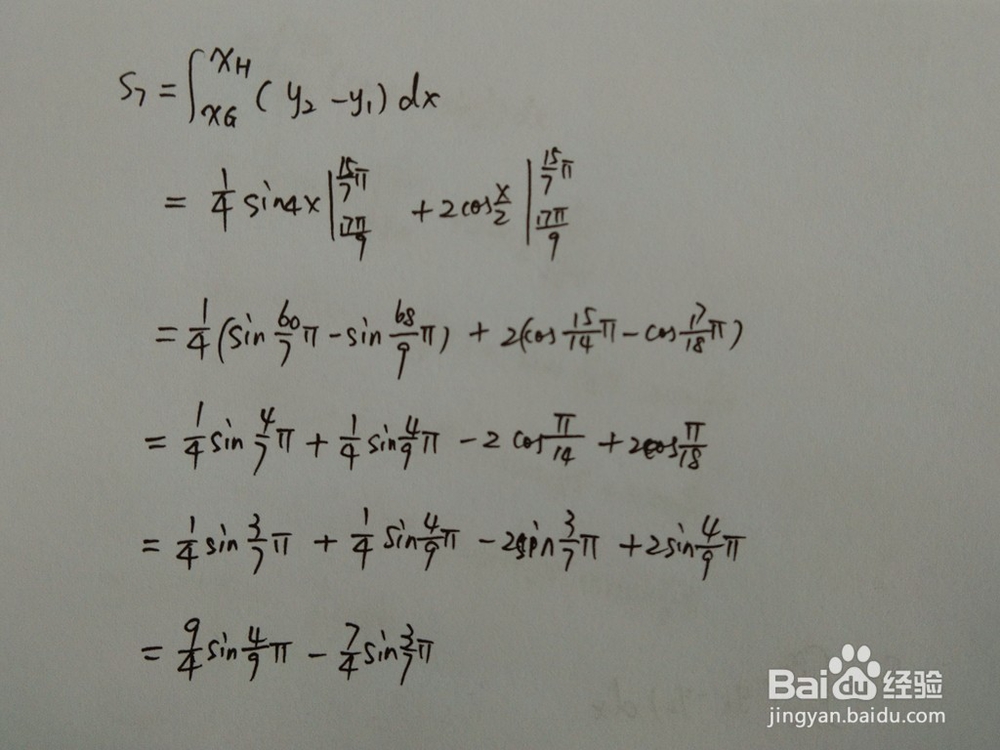 S₇ = ∫_{xG}^{xH} (y₂ - y₁) dx
= 1/4 sin4x |_{17π/9}^{15/7 π} + 2cos x/2 |_{17π/9}^{15/7 π}
= 1/4 (sin 60/7 π - sin 68/9 π) + 2(cos 15/14 π - cos 17/18 π)
= 1/4 sin 4/7 π + 1/4 sin 4/9 π - 2 cos π/14 + 2cos π/18
= 1/4 sin 3/7 π + 1/4 sin 4/9 π - 2sin 3/7 π + 2sin 4/9 π
= 9/4 sin 4/9 π - 7/4 sin 3/7 π
Baidu经验
jingyan.baidu.com